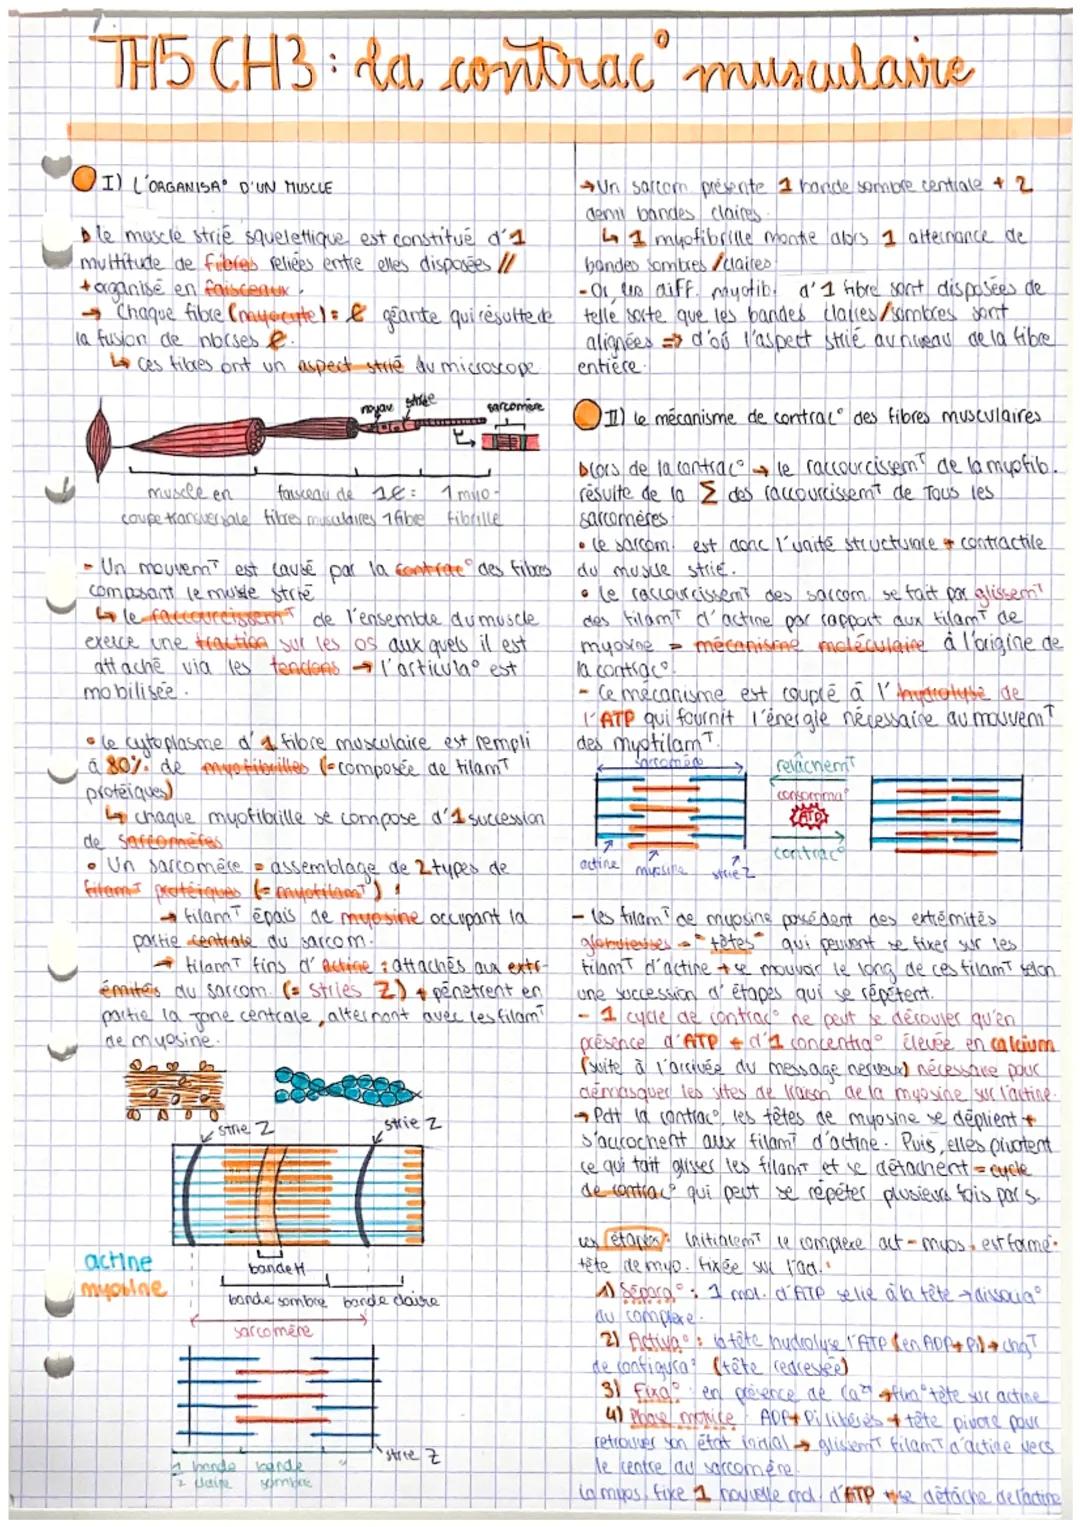 TH5 CH3 : la contrac° musculaire
I) L'ORGANISA° D'UN MUSCLE
le muscle strié squelettique est constitué d'1
multitude de fibres reliées entre elles disposées //
+ organisé en faisceaux.
→ Chaque fibre (myocyte) = géante qui résulte de
la fusion de nbrses
↳ ces fibres ont un aspect strié au microscope
noyau strie sarcomère
muscle en faisceau de 1 ¢ : 1 myo-
coupe transversale fibres musculaires 1 fibre fibrille
- Un mouvemT est causé par la contrac° des fibres
composant le muscle strié
↳ le raccourcissemT de l'ensemble du muscle
exerce une traction sur les os auxquels il est
attaché via les tendons → l'articula° est
mobilisée.
• le cytoplasme d'1 fibre musculaire est rempli
à 80% de myofibrilles (= composée de filamT
protéiques)
↳ chaque myofibrille se compose d'1 succession
de sarcomères
• Un sarcomère = assemblage de 2 types de
filamT protéiques (= myofilamT) :
→ filamT épais de myosine occupant la
partie centrale du sarcom.
→ filamT fins d'actine : attachés aux extr-
émités du sarcom. (= stries Z) + pénètrent en
partie la zone centrale, alternant avec les filamT
de myosine.
strie Z strie Z
actine
myosine
bande H
bande sombre bande claire
sarcomère
strie Z
1/2 bande claire bande sombre
→ Un sarcom. présente 1 bande sombre centrale + 2
demi bandes claires.
↳ 1 myofibrille montre alors 1 alternance de
bandes sombres / claires
- Or, les diff. myofib. d'1 fibre sont disposées de
telle sorte que les bandes claires/sombres sont
alignées => d'où l'aspect strié au niveau de la fibre
entière.
II) le mécanisme de contrac° des fibres musculaires
lors de la contrac° → le raccourcissemT de la myofib.
résulte de la Σ des raccourcissemT de TOUS les
sarcomères.
• le sarcom. est donc l'unité structurale + contractile
du muscle strié.
• le raccourcissemT des sarcom. se fait par glissemT
des filamT d'actine par rapport aux filamT de
myosine = mécanisme moléculaire à l'origine de
la contrac°.
- Ce mécanisme est couplé à l'hydrolyse de
l'ATP qui fournit l'énergie nécessaire au mouvemT
des myofilamT.
sarcomère relâchemT
consomma°
ATP
contrac°
actine myosine strie Z
- les filamT de myosine possèdent des extrémités
globuleuses = "têtes" qui peuvent se fixer sur les
filamT d'actine + se mouvoir le long de ces filamT selon
une succession d'étapes qui se répètent.
- 1 cycle de contrac° ne peut se dérouler qu'en
présence d'ATP + d'1 concentra° élevée en calcium
(suite à l'arrivée du message nerveux) nécessaire pour
démasquer les sites de liaison de la myosine sur l'actine.
→ Pdt la contrac°, les têtes de myosine se déplient +
s'accrochent aux filamT d'actine. Puis, elles pivotent
ce qui fait glisser les filamT et se détachent = cycle
de contrac° qui peut se répéter plusieurs fois par s.
les étapes : initialemT le complexe act-myos. est formé.
tête de myo. fixée sur l'act.
1) Sépara° : 1 mol. d'ATP se lie à la tête → dissocia°
du complexe.
2) Activa° : la tête hydrolyse l'ATP (en ADP + Pi) → chgT
de configura° (tête redressée)
3) Fixa° : en présence de Ca²⁺ → fixa° tête sur actine
4) Phase motrice : ADP + Pi libérés → tête pivote pour
retrouver son état initial → glissemT filamT d'actine vers
le centre du sarcomère.
la myos. fixe 1 nouvelle mol. d'ATP + se détache de l'actine